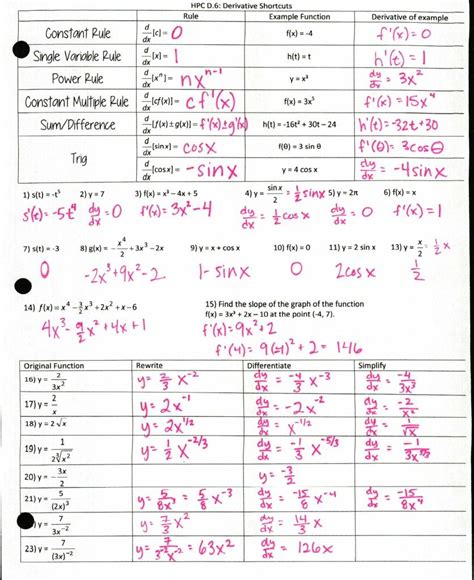 HPC D.6: Derivative Shortcuts
Rule Example Function Derivative of example
Constant Rule d/dx [c] = 0 f(x) = -4 f'(x) = 0
Single Variable Rule d/dx [x] = 1 h(t) = t h'(t) = 1
Power Rule d/dx [xⁿ] = nxⁿ⁻¹ y = x³ dy/dx = 3x²
Constant Multiple Rule d/dx [cf(x)] = cf'(x) f(x) = 3x⁵ f'(x) = 15x⁴
Sum/Difference d/dx [f(x) ± g(x)] = f'(x) ± g'(x) h(t) = -16t² + 30t − 24 h'(t) = -32t + 30
Trig d/dx [sinx] = cosx f(θ) = 3 sin θ f'(θ) = 3cosθ
d/dx [cosx] = -sinx y = 4 cos x dy/dx = -4sinx
1) s(t) = -t⁵ 2) y = 7 3) f(x) = x³ − 4x + 5 4) y = sinx/2 = 1/2 sinx 5) y = 2π 6) f(x) = x
s'(t) = -5t⁴ dy/dx = 0 f'(x) = 3x² − 4 dy/dx = 1/2 cosx dy/dx = 0 f'(x) = 1
7) s(t) = -3 8) g(x) = -x⁴/2 + 3x³ − 2x 9) y = x + cos x 10) f(x) = 0 11) y = 2 sin x 13) y = x/2 = 1/2 x
0 -2x³ + 9x² − 2 1 - sinx 0 2cosx 1/2
14) f(x) = x⁴ − 3/2 x³ + 2x² + x − 6 15) Find the slope of the graph of the function
f(x) = 3x³ + 2x − 10 at the point (-4, 7).
4x³ − 9/2 x² + 4x + 1 f'(x) = 9x² + 2
f'(4) = 9(-4)² + 2 = 146
Original Function Rewrite Differentiate Simplify
16) y = 2/3x² y = 2/3 x⁻² dy/dx = -4/3 x⁻³ dy/dx = -4/3x³
17) y = 2/x y = 2x⁻¹ dy/dx = -2x⁻² dy/dx = -2/x²
18) y = 2√x y = 2x^1/2 dy/dx = x^-1/2 dy/dx = 1/√x
19) y = 1/2∛x² y = 1/2 x^-2/3 dy/dx = -1/3 x^-5/3 dy/dx = -1/3x^5/3
20) y = -3x/2 y = -3/2
21) y = 5/(2x)³ y = 5/8x³ = 5/8 x⁻³ dy/dx = -15/8 x⁻⁴ dy/dx = -15/8x⁴
y = 7/3x⁻² y = 7/3 x² dy/dx = 14/3 x
23) y = 7/(3x)⁻² y = 7/3⁻²x⁻² = 63x² dy/dx = 126x